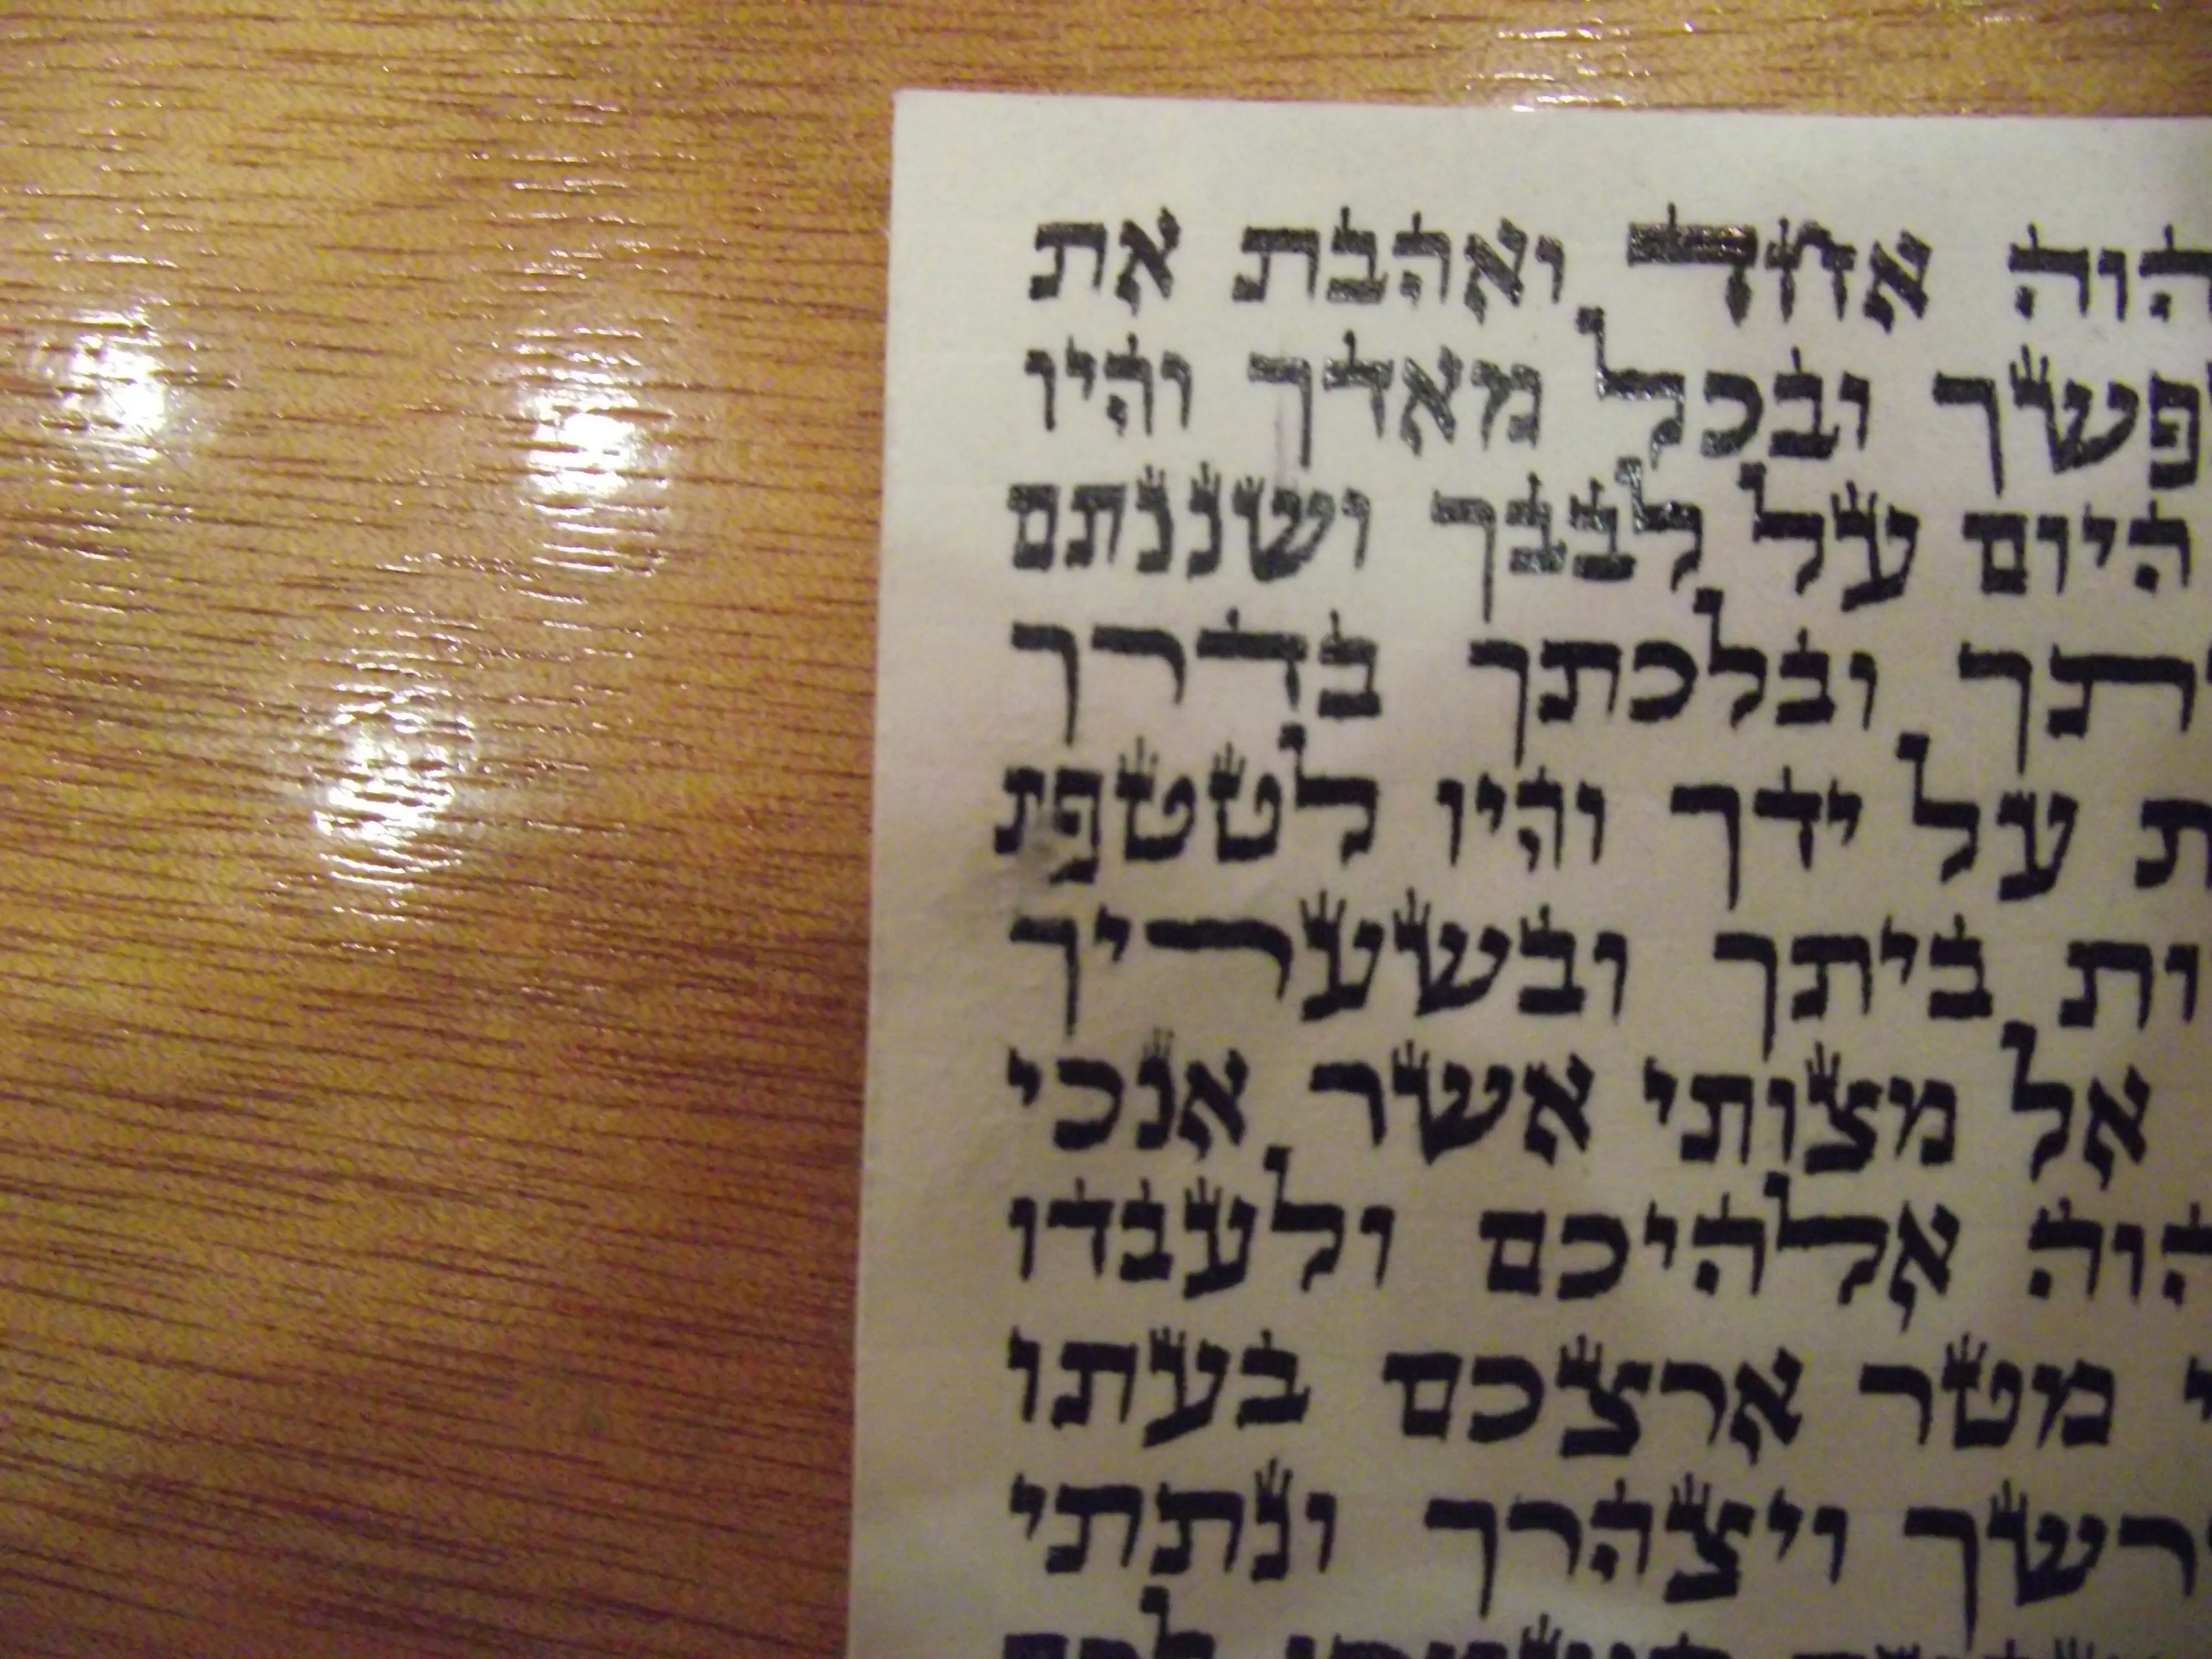 הוה אחד ואהבת את
פשך ובכל מאדך והיו
היום על לבבך ושננתם
תך ובלכתך בדרך
ת על ידך והיו לטטפת
ות ביתך ובשעריך
אל מצותי אשר אנכי
הוה אלהיכם ולעבדו
י מטר ארצכם בעתו
רשך ויצהרך ונתתי